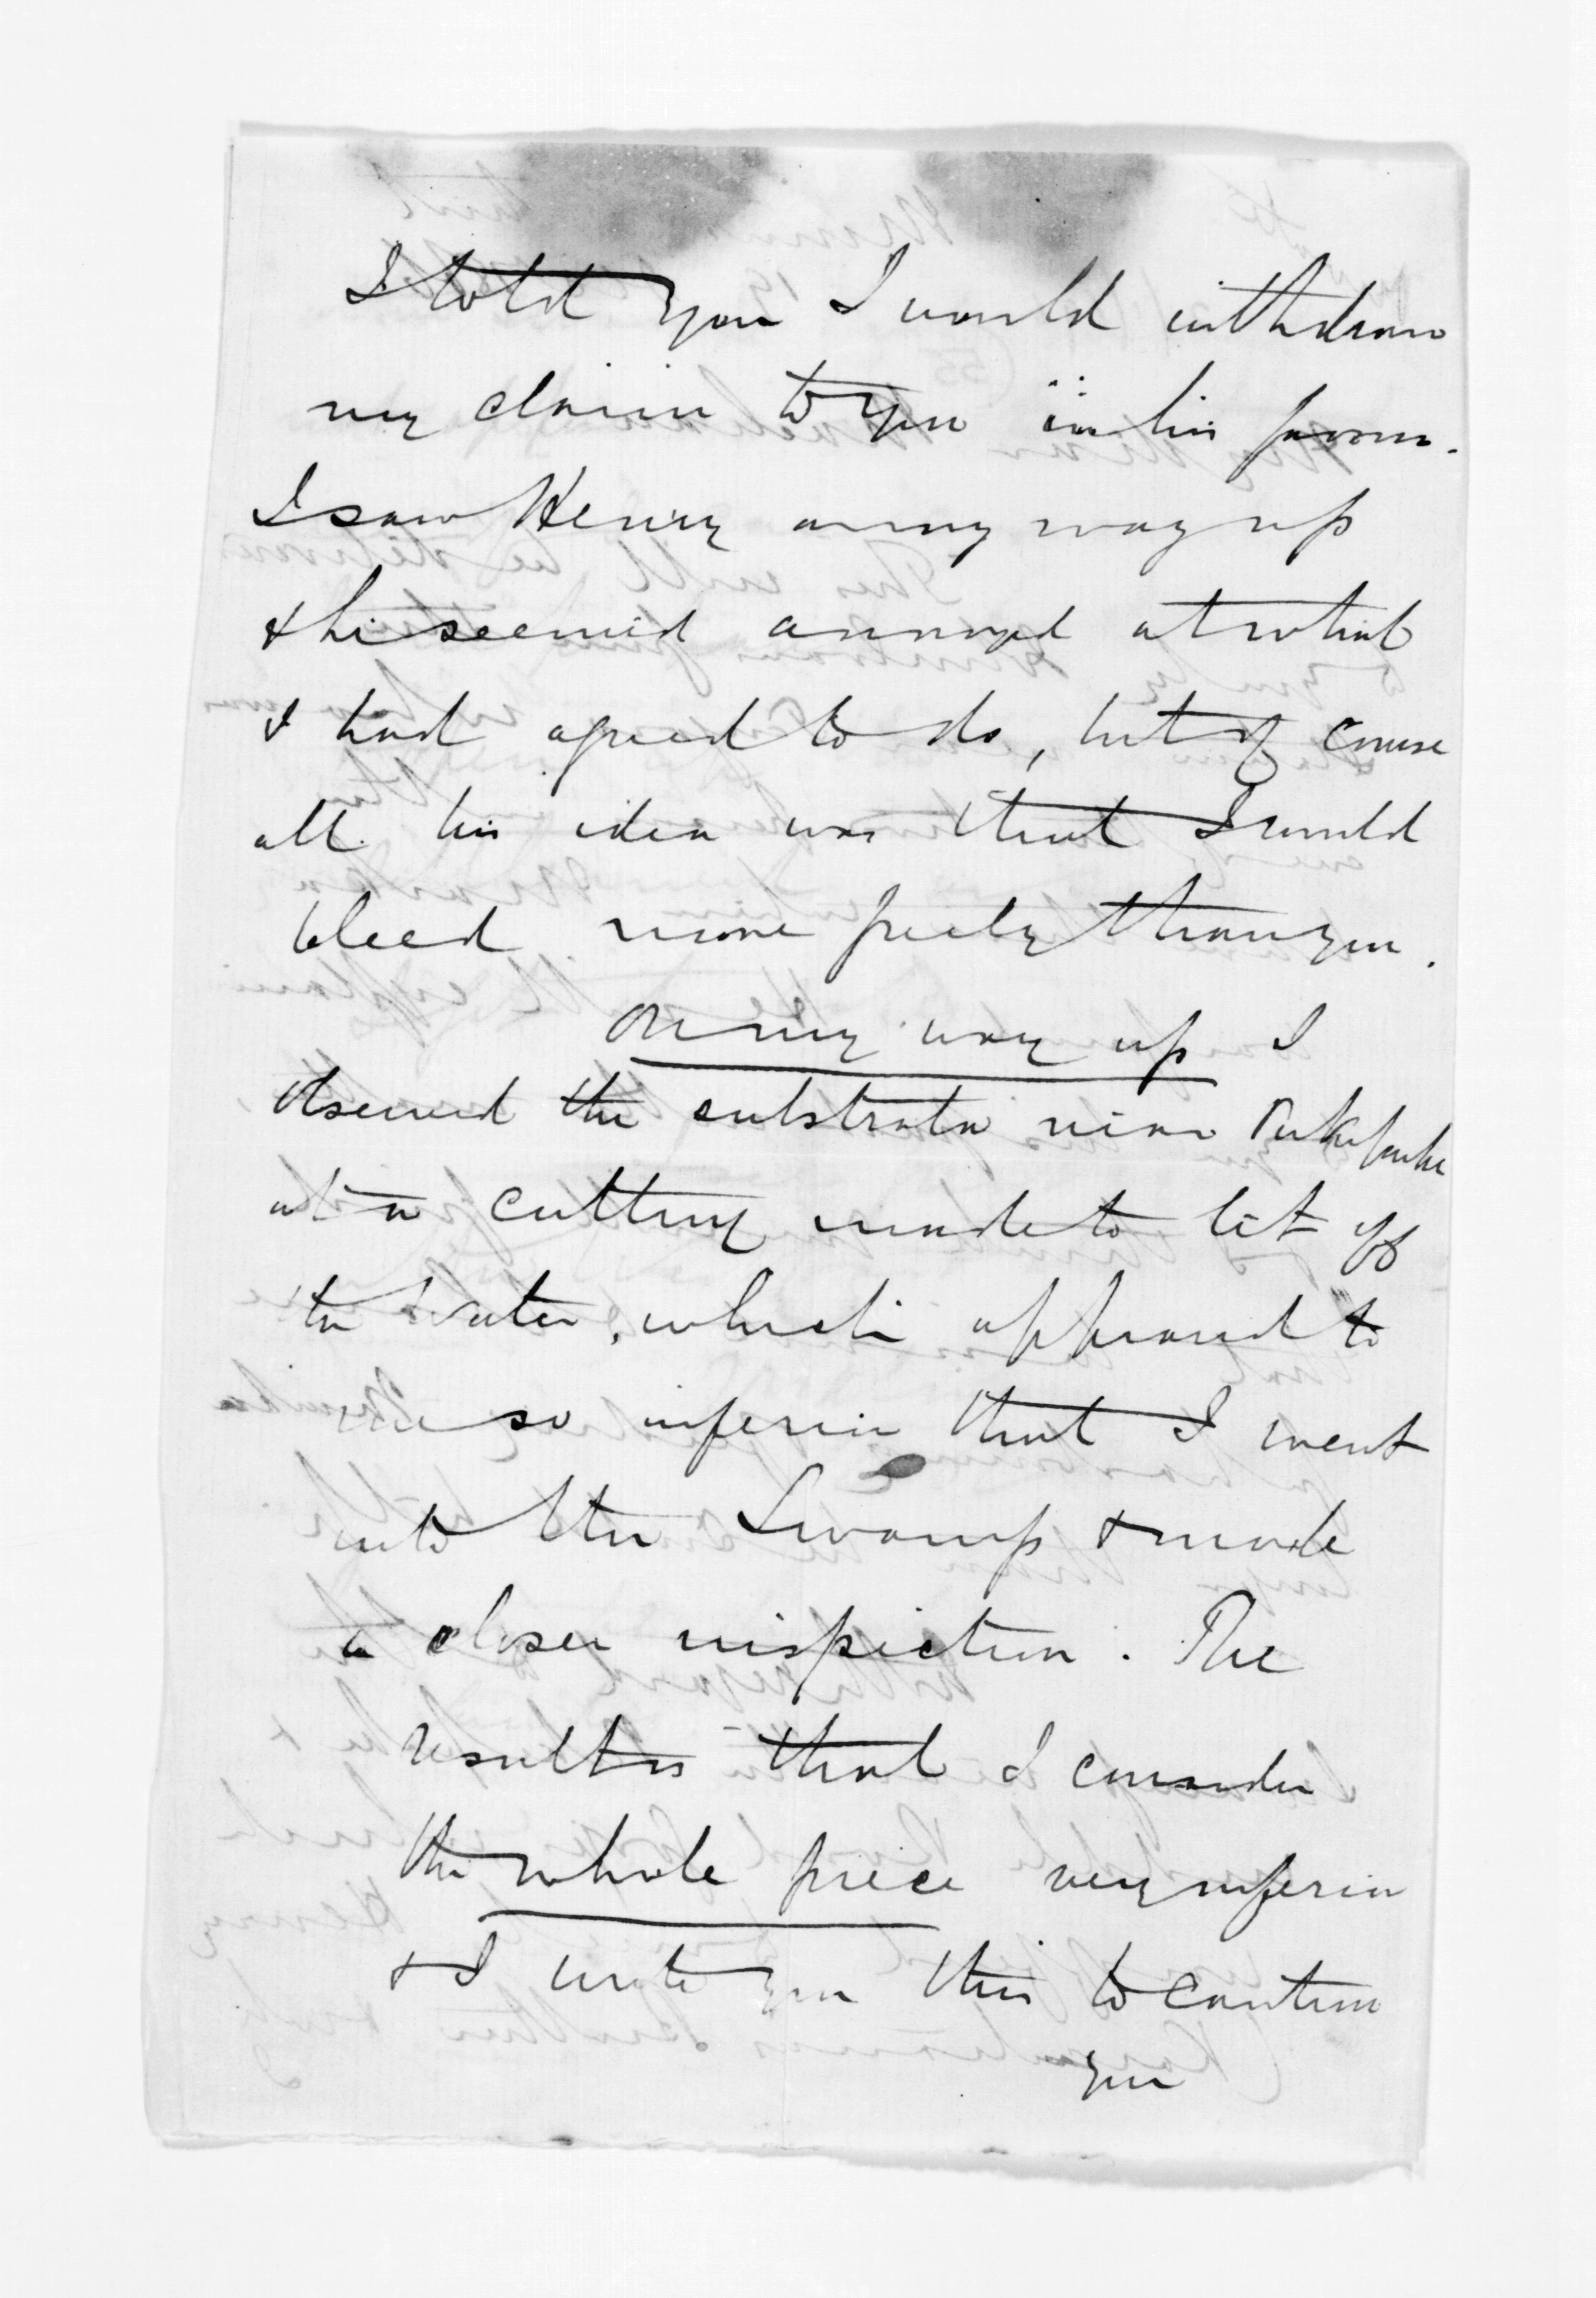 I told you I would withdraw
my claim to you in his favour.
I saw Henry on my way up
& he seemed annoyed at what
I had agreed to do, but of course
all his idea was that I would
bleed more freely than you.
On my way up I
observed the substrata near Pukepuke
at a cutting made to let off
the water, which appeared to
me so inferior that I went
into the Swamp & made
a closer inspection. The
result is that I consider
the whole piece very inferior
& I write you this to caution
you